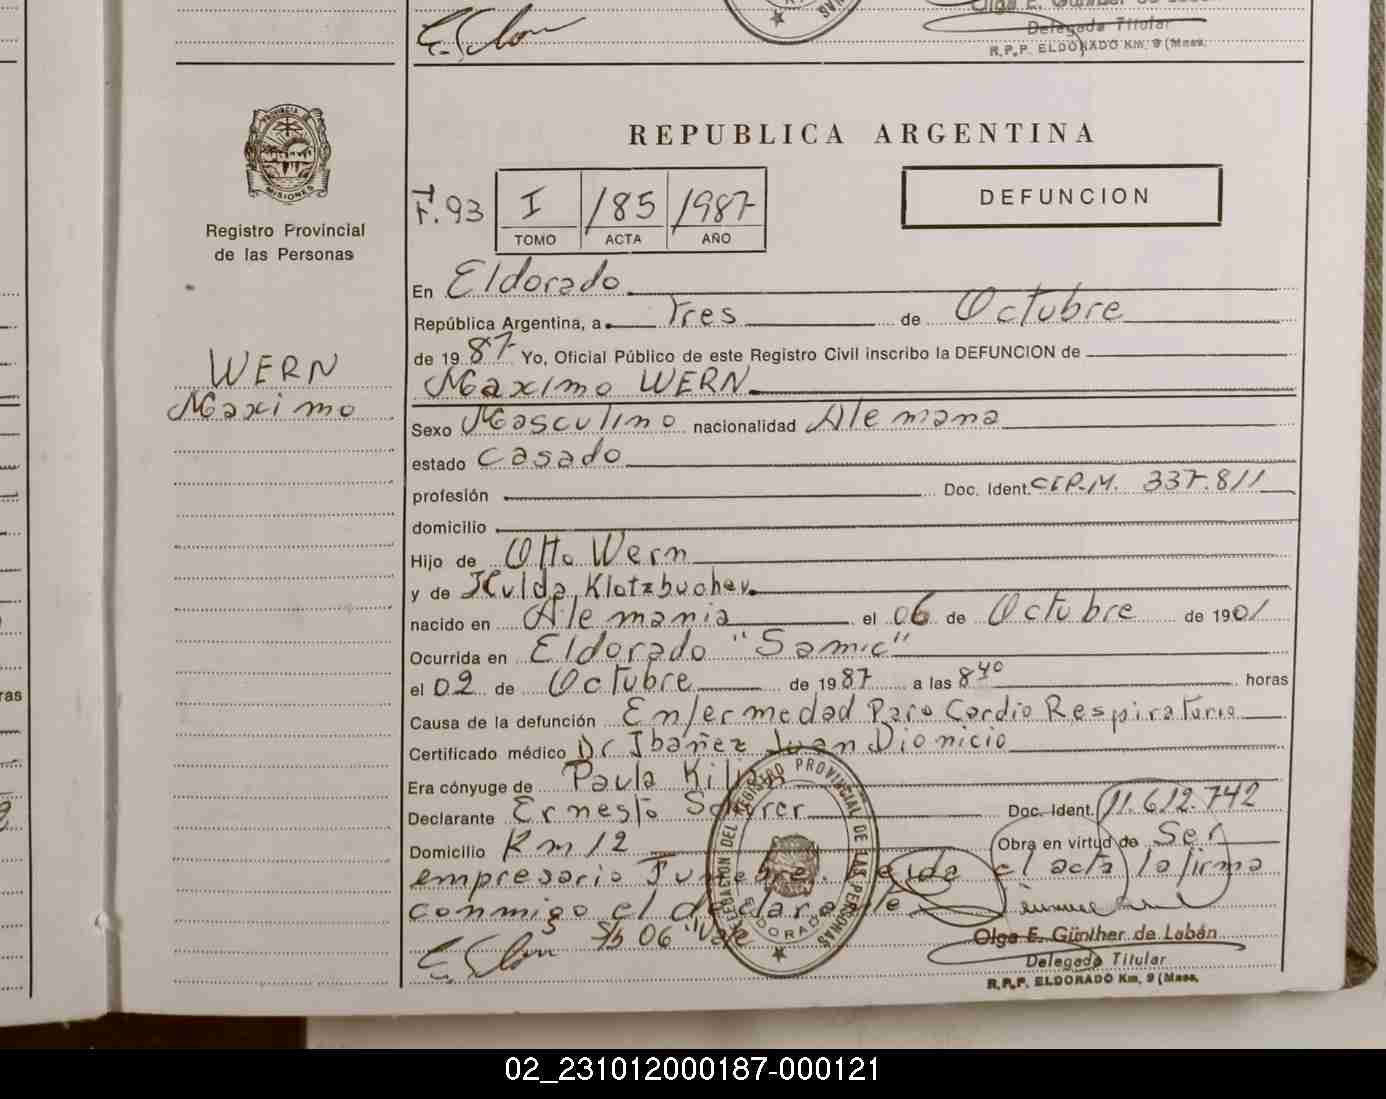 Olga E. Günther de Labán
Delegada Titular
R.P.P. ELDORADO Km. 9 (Mnes.
PROVINCIA
MISIONES
Registro Provincial
de las Personas
WERN
Maximo
REPUBLICA ARGENTINA
F. 93
I
185
1987
TOMO
ACTA
AÑO
DEFUNCION
En Eldorado
República Argentina, a Tres de Octubre
de 1987 Yo, Oficial Público de este Registro Civil inscribo la DEFUNCION de
Maximo WERN
Sexo Masculino nacionalidad Alemana
estado Casado
profesión Doc. Ident. CIP.M. 337.811
domicilio
Hijo de Otto Wern
y de Hulda Klotzbucher
nacido en Alemania el 06 de Octubre de 1901
Ocurrida en Eldorado "Samic"
el 02 de Octubre de 1987 a las 8 40 horas
Causa de la defunción Enfermedad Paro Cardio Respiratorio
Certificado médico Dr Ibañez Juan Dionicio
Era cónyuge de Paula Kilian
Declarante Ernesto Scherer Doc. Ident. 11.612.742
Domicilio Km 12 Obra en virtud de Ser
empresario Funebre. Leida el acta la firma
conmigo el declarante
S/b 06 "Vale
DELEGACION DEL REGISTRO PROVINCIAL DE LAS PERSONAS
ELDORADO
Olga E. Günther de Labán
Delegada Titular
R.P.P. ELDORADO Km. 9 (Mnes.
02_231012000187-000121